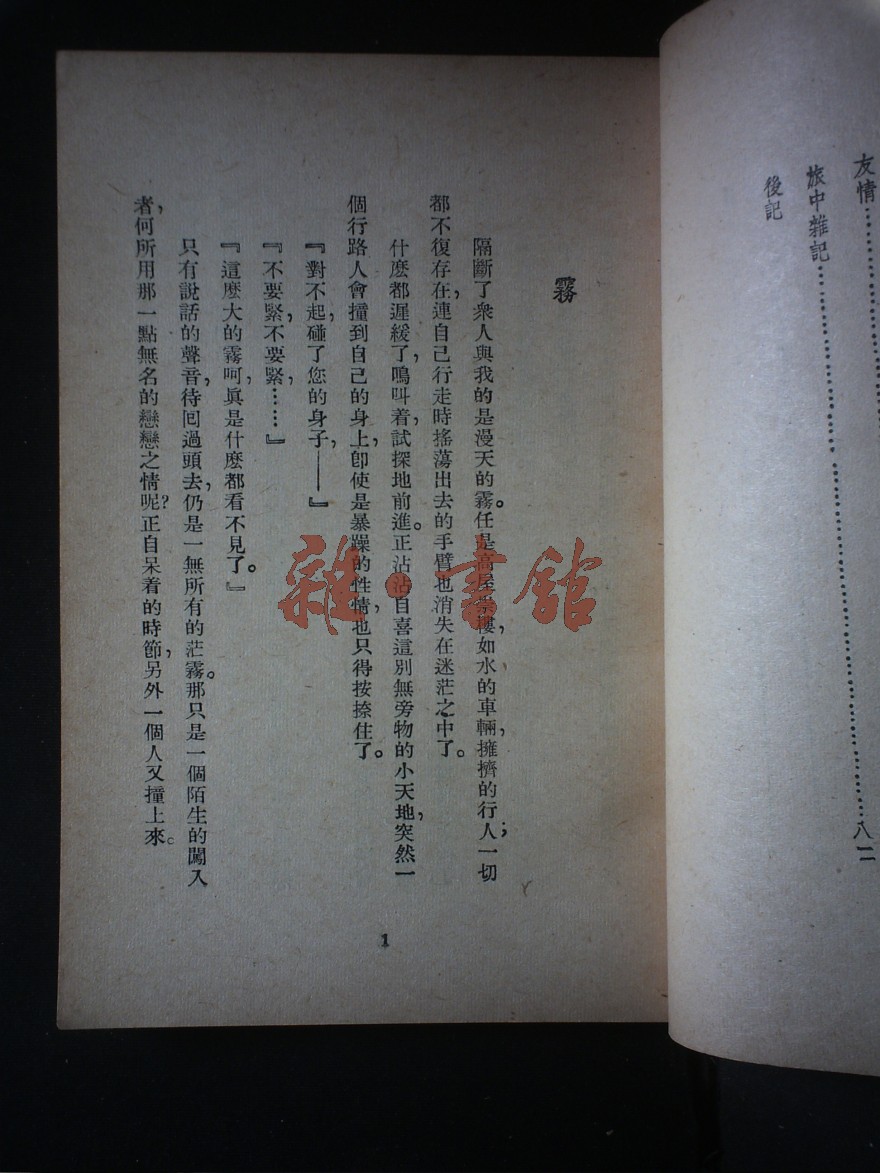 友情……………………………………八二
旅中雜記……………………
後記
霧
隔斷了衆人與我的是漫天的霧。任是高屋崇樓，如水的車輛，擁擠的行人；一切
都不復存在，連自己行走時搖蕩出去的手臂也消失在迷茫之中了。
什麽都遲緩了，鳴叫着，試探地前進。正沾沾自喜這別無旁物的小天地，突然一
個行路人會撞到自己的身上，卽使是暴躁的性情，也只得按捺住了。
『對不起，碰了您的身子，——』
『不要緊，不要緊，……』
『這麽大的霧呵，眞是什麽都看不見了。』
只有說話的聲音，待囘過頭去，仍是一無所有的茫霧。那只是一個陌生的闖入
者，何所用那一點無名的戀戀之情呢？正自呆着的時節，另外一個人又撞上來。
1
雜·書館